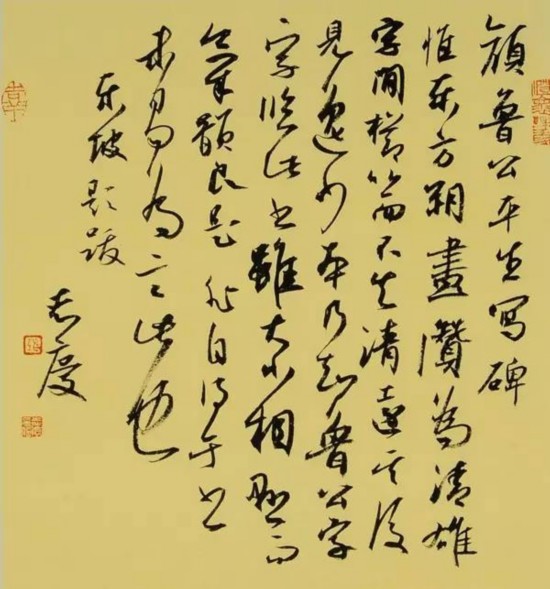 顏魯公平生寫碑
惟東方朔畫讚為清雄
字間櫛比而不失清遠其後
見逸少本乃知魯公字
字臨此書雖大小相懸而
氣韻良是非自得于書
未易為言此也
東坡題跋